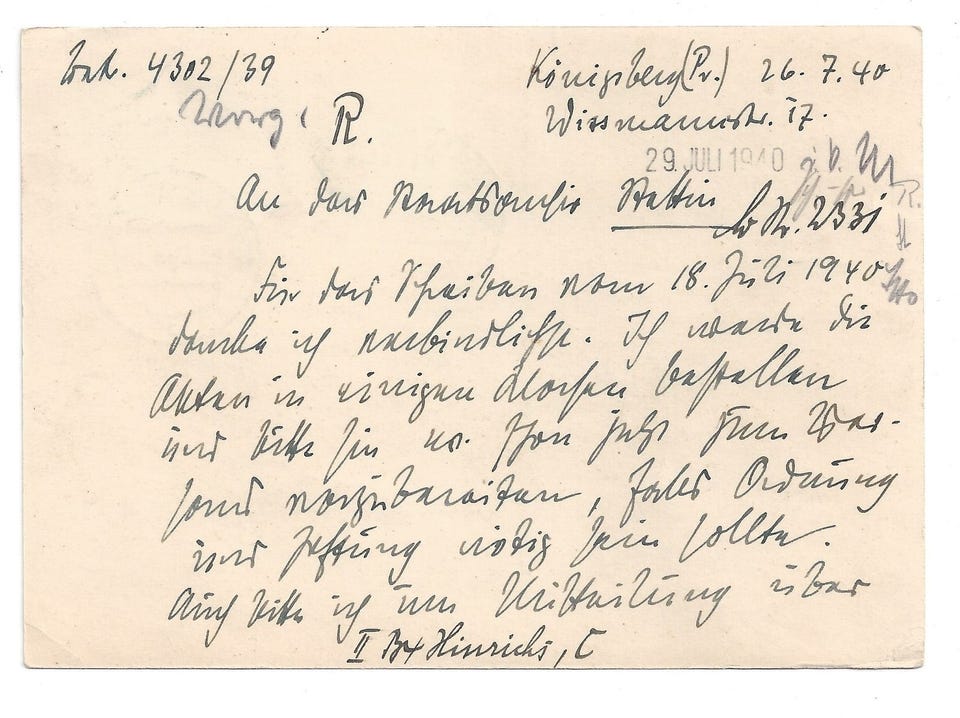 4302/39
Königsberg (Pr.) 26.7.40
Wissmannstr. 17.
R.
29. JULI 1940
An das Staatsarchiv Stettin
Nr. 2331
Für das Schreiben vom 18. Juli 1940
danke ich verbindlichst. Ich werde die
Akten in einigen Wochen bestellen
und bitte sie ev. schon jetzt zum Ver-
sand vorzubereiten, falls Ordnung
und Heftung nötig sein sollte.
Auch bitte ich um Mitteilung über
II Hinrichs, C